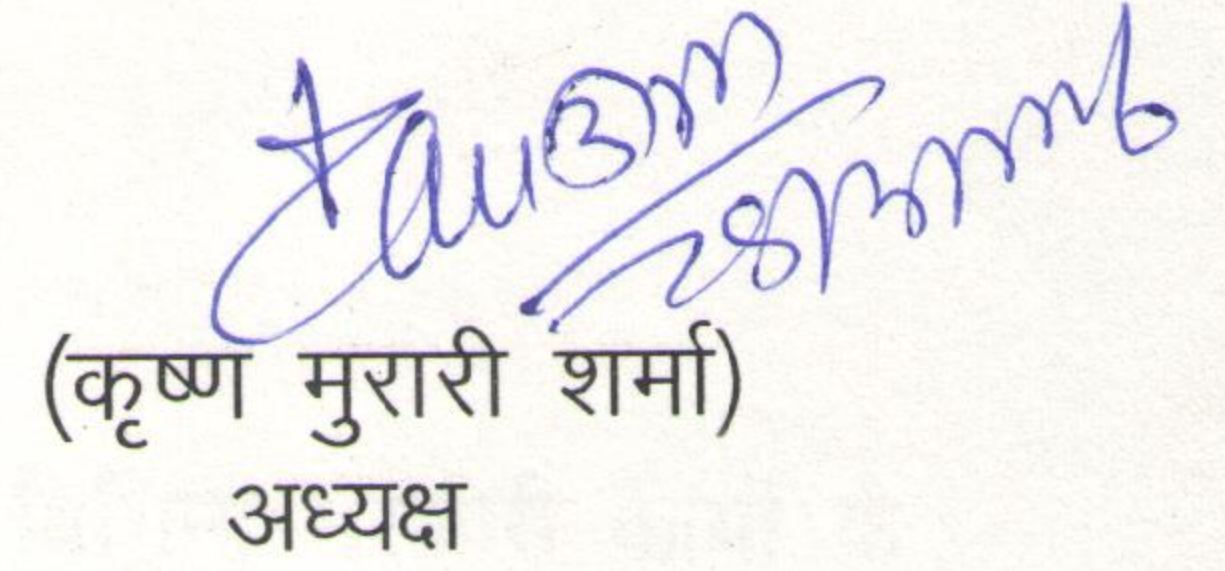 (कृष्ण मुरारी शर्मा)
अध्यक्ष